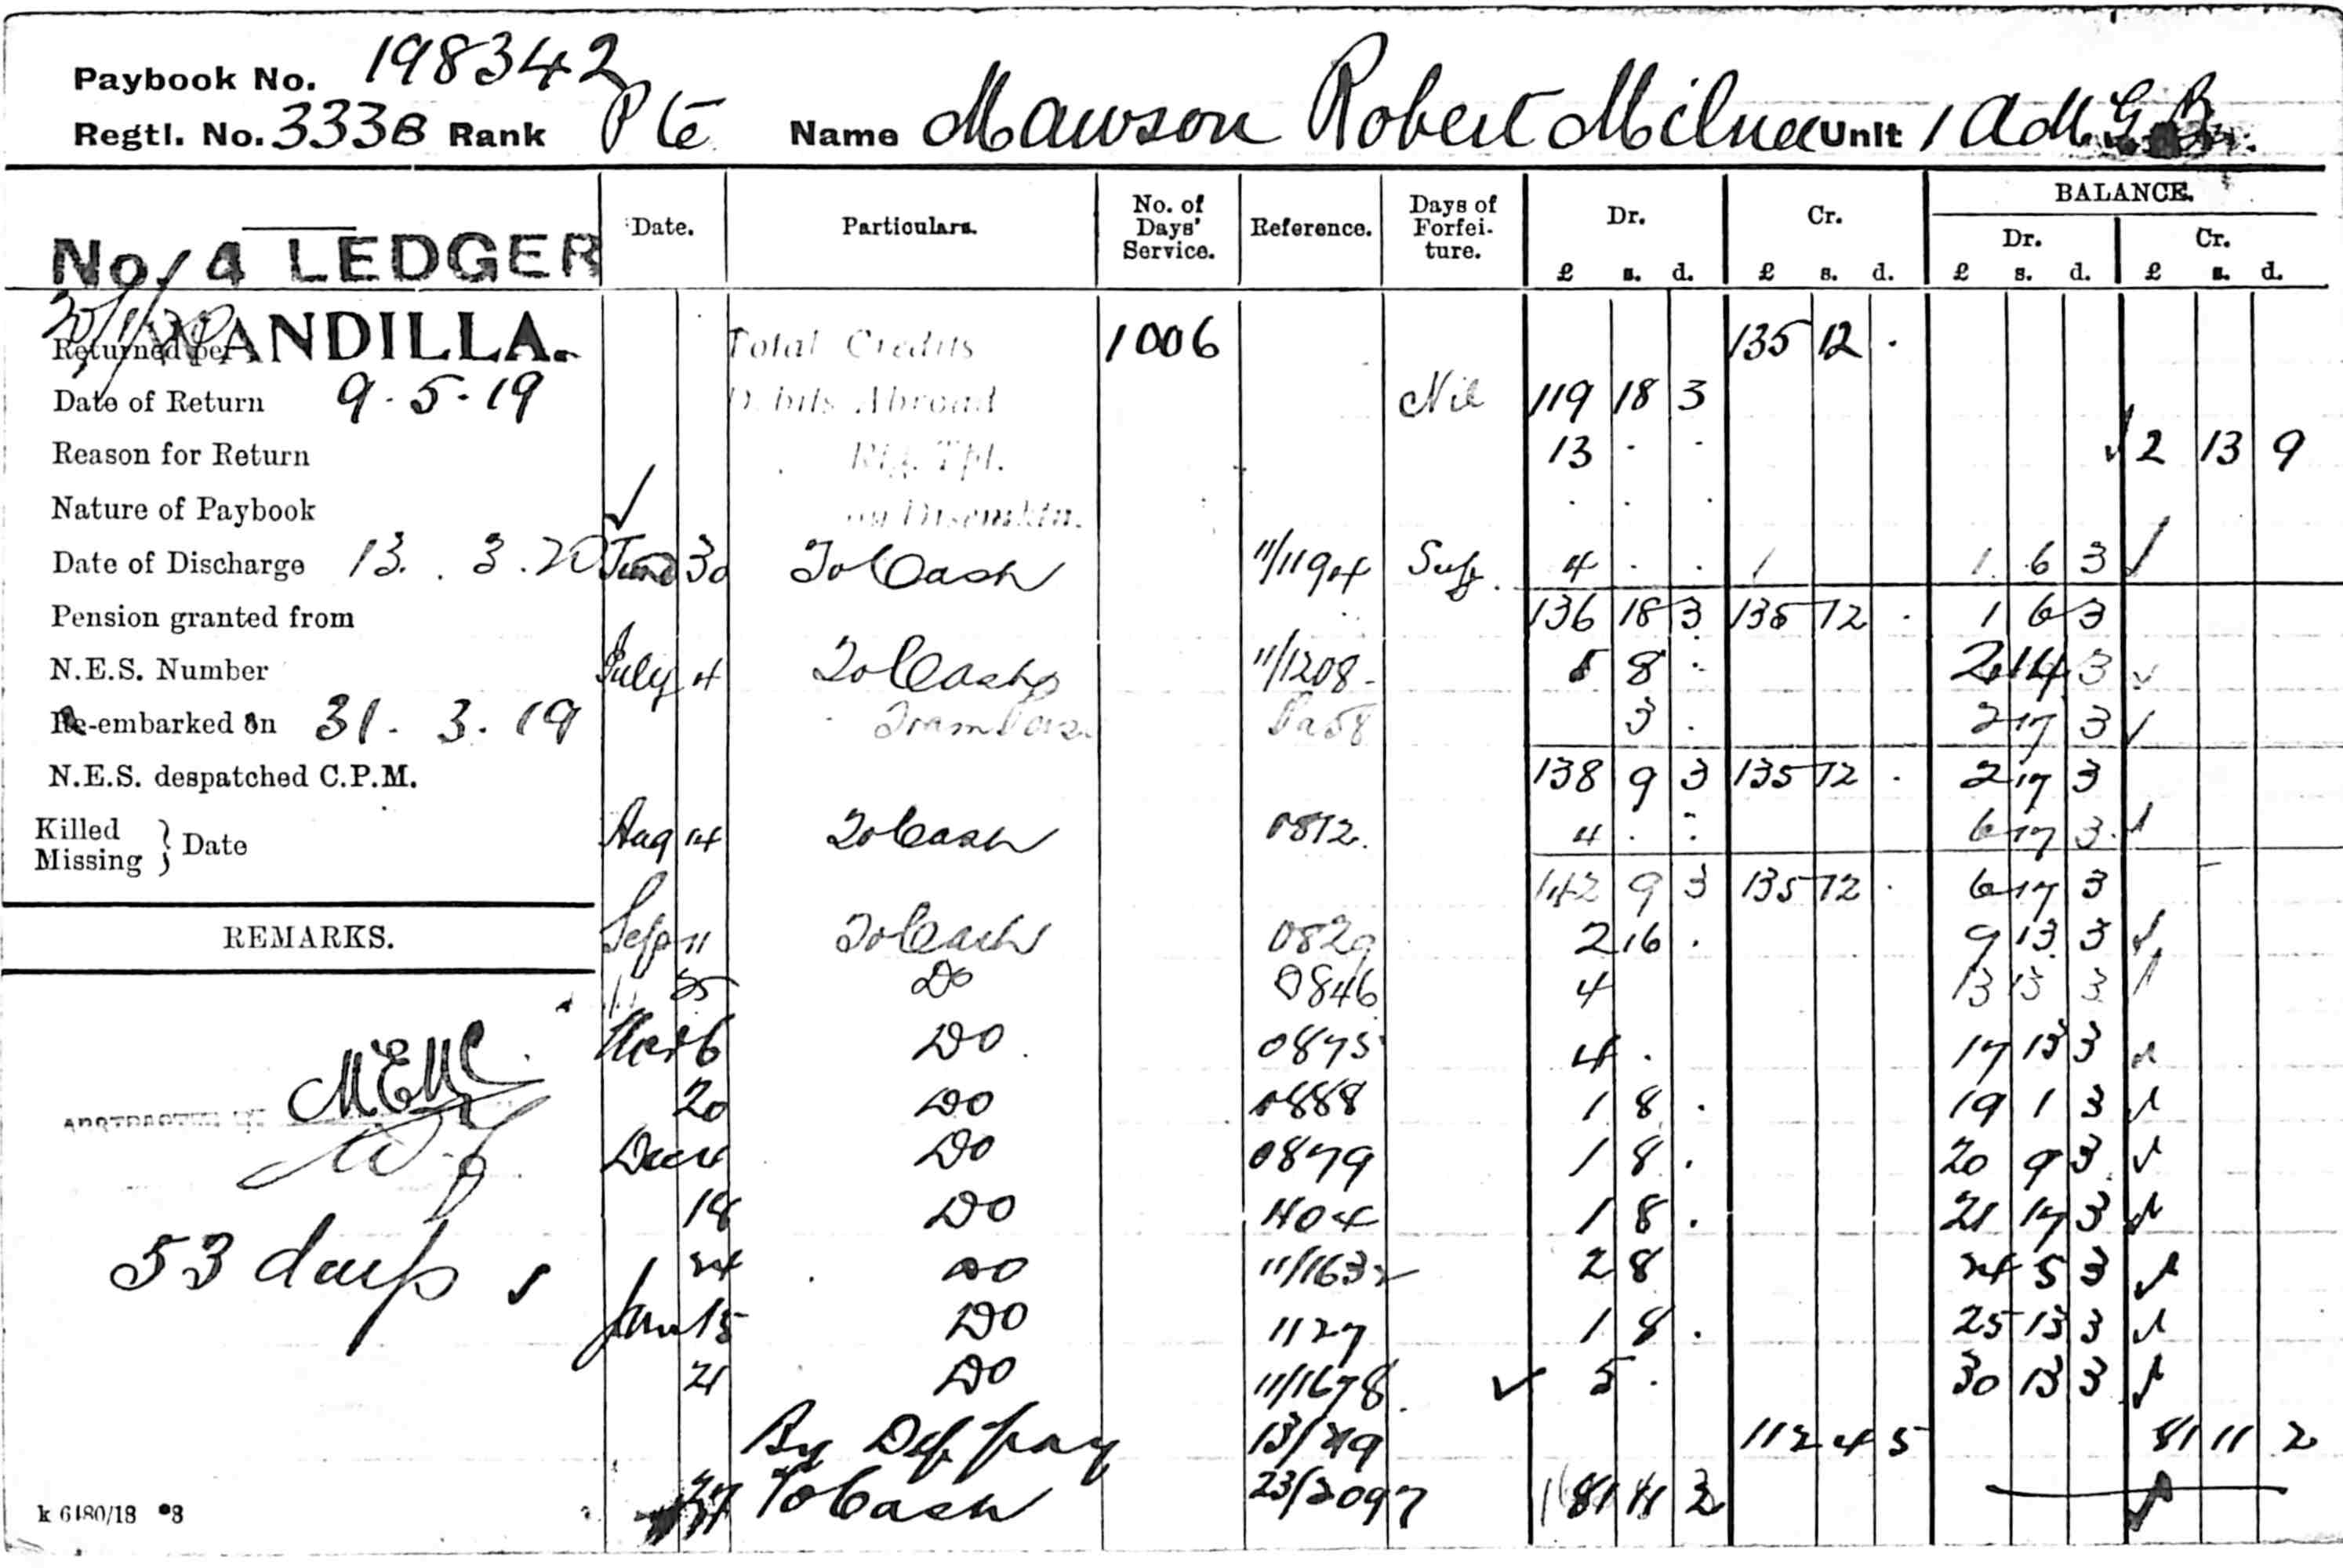 Paybook No. 198342
Regtl. No. 3338 Rank Pte Name Mawson Robert Milner Unit 1 A.M.G.B.
No. 4 LEDGER Date. Particulars. No. of Days' Service. Reference. Days of Forfeiture. Dr. £ s. d. Cr. £ s. d. BALANCE. Dr. £ s. d. Cr. £ s. d.
Returned per WANDILLA. Total Credits 1006 135 12 .
Date of Return 9.5.19 Debits Abroad Nil 119 18 3
Reason for Return Rtg. Tpt. 13 . . 2 13 9
Nature of Paybook on Disemktn. . . .
Date of Discharge 13.3.20 June 30 To Cash 11/1194 4 . . 1 6 3
Pension granted from 136 18 3 135 12 . 1 6 3
N.E.S. Number July 4 To Cash 11/1208 8 . 2 14 3
Re-embarked on 31.3.19 3 . 2 17 3
N.E.S. despatched C.P.M. 138 9 3 135 12 . 2 17 3
Killed Missing } Date Aug 14 To Cash 0812. 4 . . 6 17 3
142 9 3 135 12 . 6 17 3
REMARKS. Sep 11 To Cash 0829 2 16 . 9 13 3
25 Do 0846 4 13 13 3
6 Do 0875 4 . 17 13 3
20 Do 0888 1 8 . 19 1 3
Dec 4 Do 0879 1 8 . 20 9 3
18 Do 1 8 . 21 17 3
53 days 24 Do 11/1632 2 8 24 5 3
Jan 15 Do 1127 1 8 . 25 13 3
21 Do 11/1678 5 . 30 13 3
By Def pay 112 4 5 81 11 2
27 To Cash 23/2097 81 11 2
k 6480/18